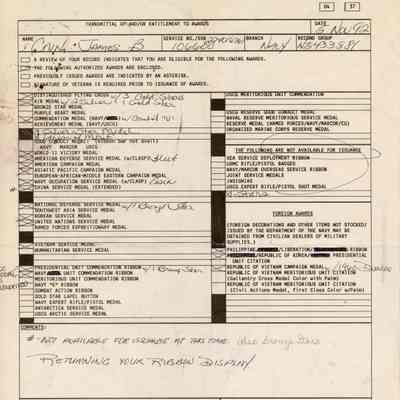 04 37
TRANSMITTAL OF AND/OR ENTITLEMENT TO AWARDS
DATE
5 Nov 92
NAME
James B
SERVICE NO./SSN
106600
BRANCH
Navy
RECORD GROUP
A REVIEW OF YOUR RECORD INDICATES THAT YOU ARE ELIGIBLE FOR THE FOLLOWING AWARDS.
THE FOLLOWING AUTHORIZED AWARDS ARE ENCLOSED.
PREVIOUSLY ISSUED AWARDS ARE INDICATED BY AN ASTERISK.
SIGNATURE OF VETERAN IS REQUIRED PRIOR TO ISSUANCE OF AWARDS.
DISTINGUISHED FLYING CROSS w/3 Gold Stars
AIR MEDAL
BRONZE STAR MEDAL
PURPLE HEART MEDAL
COMMENDATION MEDAL
ACHIEVEMENT MEDAL
Silver Star Medal
GOOD CONDUCT MEDAL
NAVY MARINE USCG
WORLD II VICTORY MEDAL
AMERICAN DEFENSE SERVICE MEDAL (W/CLASP)
AMERICAN CAMPAIGN MEDAL
ASIATIC PACIFIC CAMPAIGN MEDAL
EUROPEAN-AFRICAN-MIDDLE EASTERN CAMPAIGN MEDAL
NAVY OCCUPATION SERVICE MEDAL (W/CLASP)
CHINA SERVICE MEDAL (EXTENDED)
NATIONAL DEFENSE SERVICE MEDAL
SOUTHWEST ASIA SERVICE MEDAL
KOREAN SERVICE MEDAL
UNITED NATIONS SERVICE MEDAL
ARMED FORCES EXPEDITIONARY MEDAL
VIETNAM SERVICE MEDAL
HUMANITARIAN SERVICE MEDAL
PRESIDENTIAL UNIT COMMENDATION RIBBON
NAVY UNIT COMMENDATION RIBBON
MERITORIOUS UNIT COMMENDATION RIBBON
NAVY "E" RIBBON
COMBAT ACTION RIBBON
GOLD STAR LAPEL BUTTON
EXPERT RIFLE/PISTOL MEDAL
ANTARCTICA SERVICE MEDAL
USCG ARCTIC SERVICE MEDAL
USCG MERITORIOUS UNIT COMMENDATION
USCG RESERVE GOOD CONDUCT MEDAL
NAVAL RESERVE MERITORIOUS SERVICE MEDAL
RESERVE MEDAL (ARMED FORCES/NAVY/MARCOR/CG)
ORGANIZED MARINE CORPS RESERVE MEDAL
THE FOLLOWING ARE NOT AVAILABLE FOR ISSUANCE
SEA SERVICE DEPLOYMENT RIBBON
USMC RIFLE/PISTOL BADGES
NAVY/MARCOR OVERSEAS SERVICE RIBBON
JOINT SERVICE MEDALS
INSIGNIAS
USCG EXPERT RIFLE/PISTOL SHOT MEDAL
FOREIGN AWARDS
(FOREIGN DECORATIONS AND OTHER ITEMS NOT STOCKED/
ISSUED BY THE DEPARTMENT OF THE NAVY MAY BE
OBTAINED FROM CIVILIAN DEALERS OF MILITARY
SUPPLIES.)
PHILIPPINE LIBERATION RIBBON
REPUBLIC OF KOREA PRESIDENTIAL
UNIT CITATION
REPUBLIC OF VIETNAM CAMPAIGN MEDAL
REPUBLIC OF VIETNAM MERITORIOUS UNIT CITATION
(Gallantry Cross Medal Color with Palm)
REPUBLIC OF VIETNAM MERITORIOUS UNIT CITATION
(Civil Actions Medal, First Class Color w/Palm)
COMMENTS:
# - NOT AVAILABLE FOR ISSUANCE AT THIS TIME.
RETURNING YOUR RIBBON DISPLAY